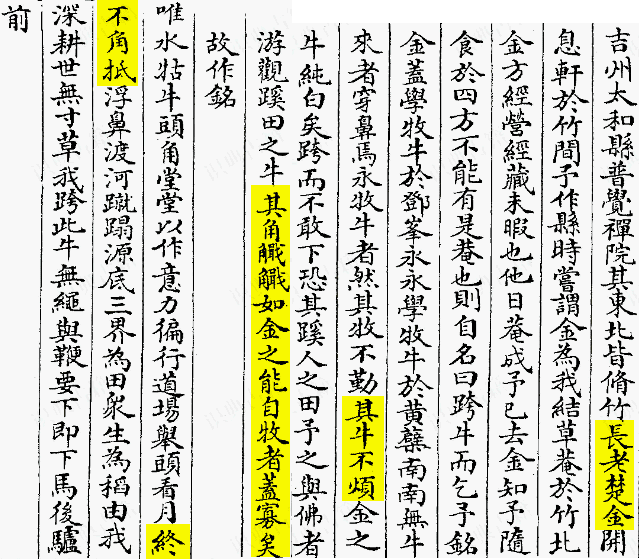 吉州太和縣普覺禪院其東北皆脩竹長老楚金開
息軒於竹間予作縣時嘗謂金為我結草菴於竹北
金方經營經藏未暇也他日菴成予已去金知予隨
食於四方不能有是菴也則自名曰跨牛而乞予銘
金蓋學牧牛於鄧峯永永學牧牛於黃蘗南南無牛
來者穿鼻焉永牧牛者然其牧不勤其牛不煩金之
牛純白矣跨而不敢下恐其蹊人之田予之與佛者
游觀蹊田之牛其角如金之能自牧者蓋寡矣
故作銘
唯水牯牛頭角堂堂以作意力徧行道場舉頭看月終
不角抵浮鼻渡河蹴蹋源底三界為田眾生為稻由我
深耕世無寸草我跨此牛無繩與鞭要下即下馬後驢
前